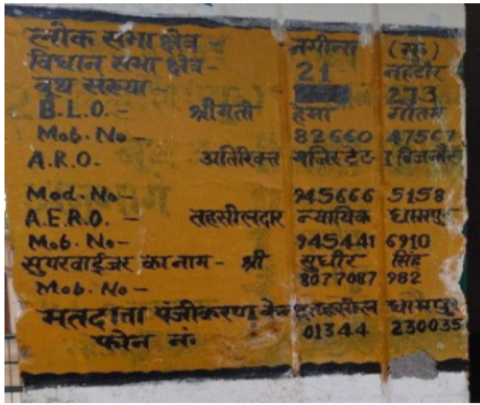 लोक सभा क्षेत्र नगीना (सु०)
विधान सभा क्षेत्र- 21 नहटौर
बूथ संख्या- 273
B.L.O.- श्रीमती हेमा गौतम
Mob. No- 82660 47567
A.R.O- अतिरिक्त मजिस्ट्रेट बिजनौर
Mod. No- 945666 5158
A.E.R.O.- तहसीलदार न्यायिक धामपुर
Mob. No- 945441 6910
सुपरवाईजर का नाम- श्री सुधीर सिंह
Mob. No- 8077087 982
मतदाता पंजीकरण केन्द्र तहसील धामपुर
फोन नं० 01344 230035